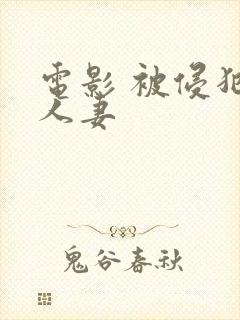 電影 被侵犯
人妻
鬼谷春秋